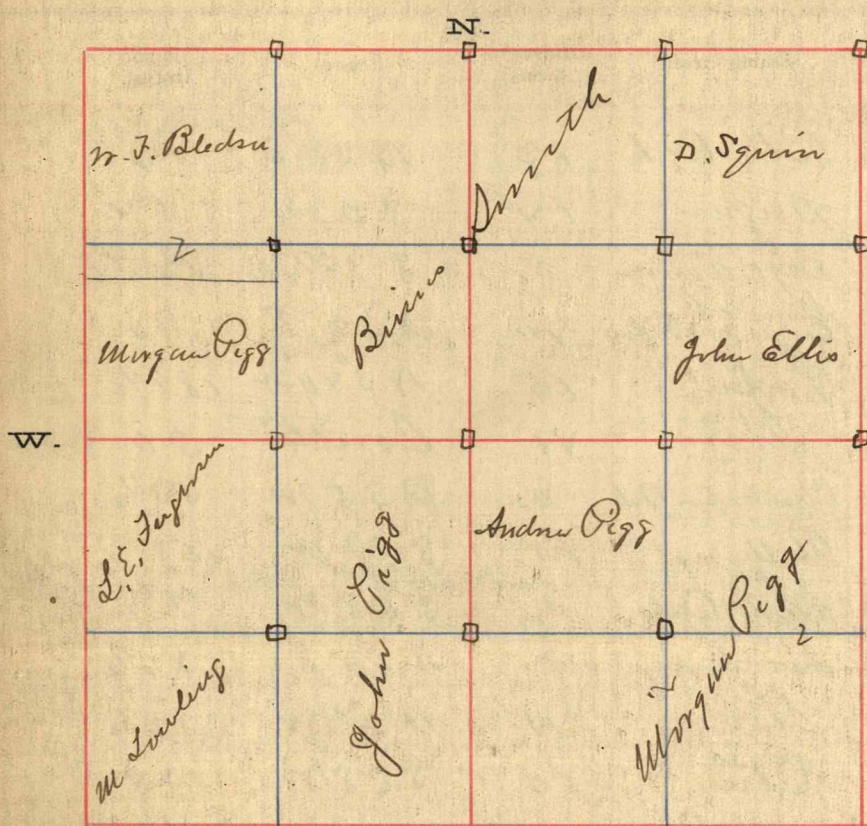 N.
W. F. Bledsu
Smith
D. Squin
2
Morgan Pigg
Binis
John Ellis
W.
L. E. Ferguson
John Pigg
Andrew Pigg
Morgan Pigg
2
2
M Lowling